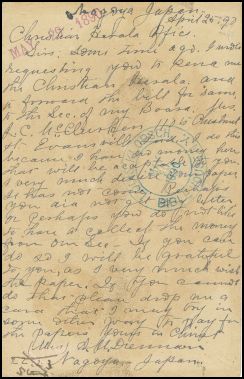 Nagoya Japan.
April 25, 93
MAY 22 1893
Christian Herald Office.
Sirs. Some time ago I wrote
requesting you to send me
the Christian Herald, and
to forward the bill for same
to the Sec. of my Board.
St.
Evansville
because I have no money here
that will be acceptable to you
I very much desire your paper
It has not come. Perhaps
you did not get my letter
or perhaps you do not like
to have to collect the money
from our Sec. If you can
do so I will be grateful
to you, as I very much wish
the paper. If you cannot
do that please drop me a
card that I may try in
some other way to pay for
the paper. Yours in Christ
(Miss)
Nagoya
Japan.